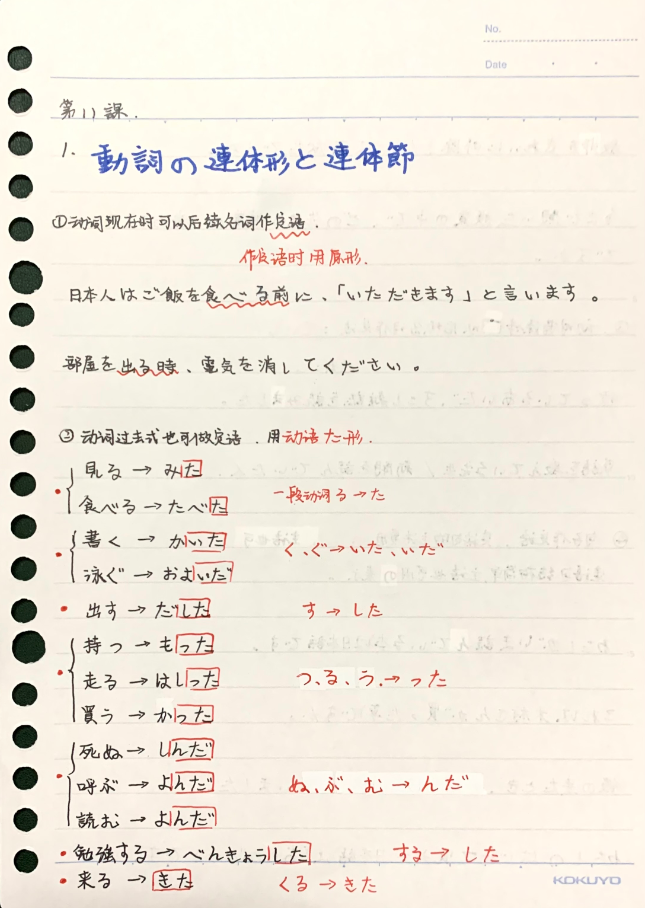 No.
Date
第11課.
1. 動詞の連体形と連体節
①动词现在时可以后续名词作定语.
作定语时用原形.
日本人はご飯を食べる前に、「いただきます」と言います。
部屋を出る時、電気を消してください。
②动词过去式也可做定语.用动语た形.
見る→みた
食べる→たべた 一段动词る→た
書く→かいた
く、ぐ→いた、いだ
泳ぐ→およいだ
出す→だした す→した
持つ→もった
走る→はしった つ、る、う→った
買う→かった
死ぬ→しんだ
呼ぶ→よんだ ぬ、ぶ、む→んだ
読む→よんだ
・勉強する→べんきょうした する→した
・来る→きた くる→きた
KOKUYO